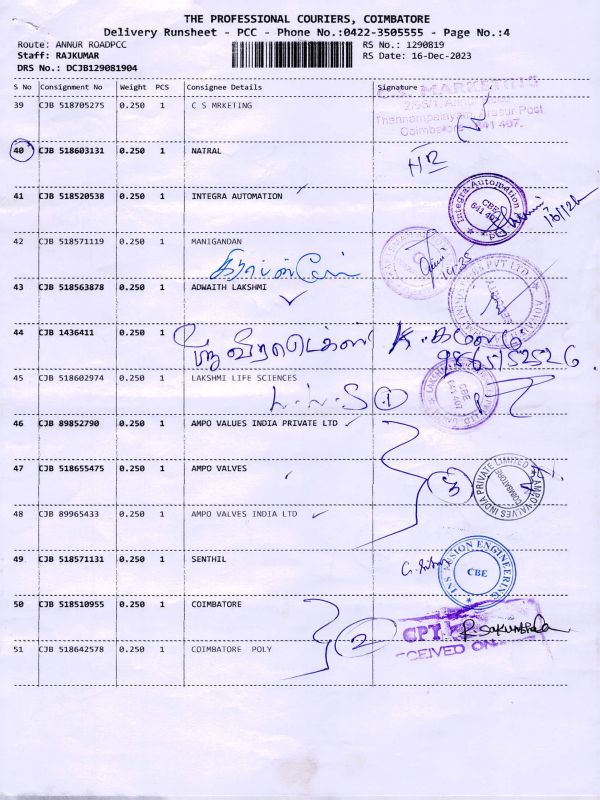 THE PROFESSIONAL COURIERS, COIMBATORE
Delivery Runsheet - PCC - Phone No.:0422-3505555 - Page No.:4
Route: ANNUR ROADPCC RS No.: 1290819
Staff: RAJKUMAR RS Date: 16-Dec-2023
DRS No.: DCJB129081904
S No Consignment No Weight PCS Consignee Details Signature
39 CJB 518705275 0.250 1 C S MRKETING
MARKETING
Coimbatore 641 407.
40 CJB 518603131 0.250 1 NATRAL
41 CJB 518520538 0.250 1 INTEGRA AUTOMATION
Integra Automation
CBE
641 407
16/12/
42 CJB 518571119 0.250 1 MANIGANDAN
14:35
43 CJB 518563878 0.250 1 ADWAITH LAKSHMI
44 CJB 1436411 0.250 1
45 CJB 518602974 0.250 1 LAKSHMI LIFE SCIENCES
L.L.S 1
CBE
641 407
46 CJB 89852790 0.250 1 AMPO VALUES INDIA PRIVATE LTD
47 CJB 518655475 0.250 1 AMPO VALVES
3
AMPO VALVES INDIA PRIVATE LIMITED
COIMBATORE
48 CJB 89965433 0.250 1 AMPO VALVES INDIA LTD
49 CJB 518571131 0.250 1 SENTHIL
ENGINEERING
CBE
50 CJB 518510955 0.250 1 COIMBATORE
2
CPT
51 CJB 518642578 0.250 1 COIMBATORE POLY
CEIVED ON